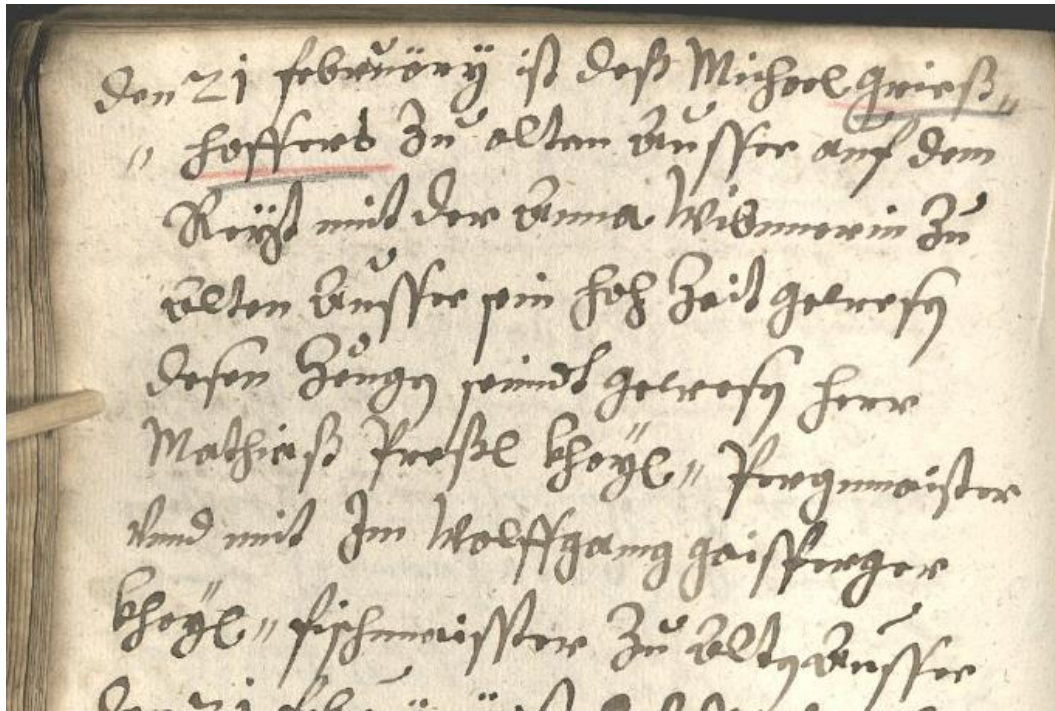 den 21 februäry ist deß Michael Grieß„
„ hoffers zu alten Aussee auf dem
Reÿst mit der Anna Wibmerin zu
Alten Aussee sein hoh Zeit gewesen
desen Zeugen seindt gewesen herr
Mathiaß Preßl khayl„ Pergmaister
vnnd mit Im Wolffganng gaisperger
khayl„ fischmaisster zu Alten Aussee
den 21 februäry ist